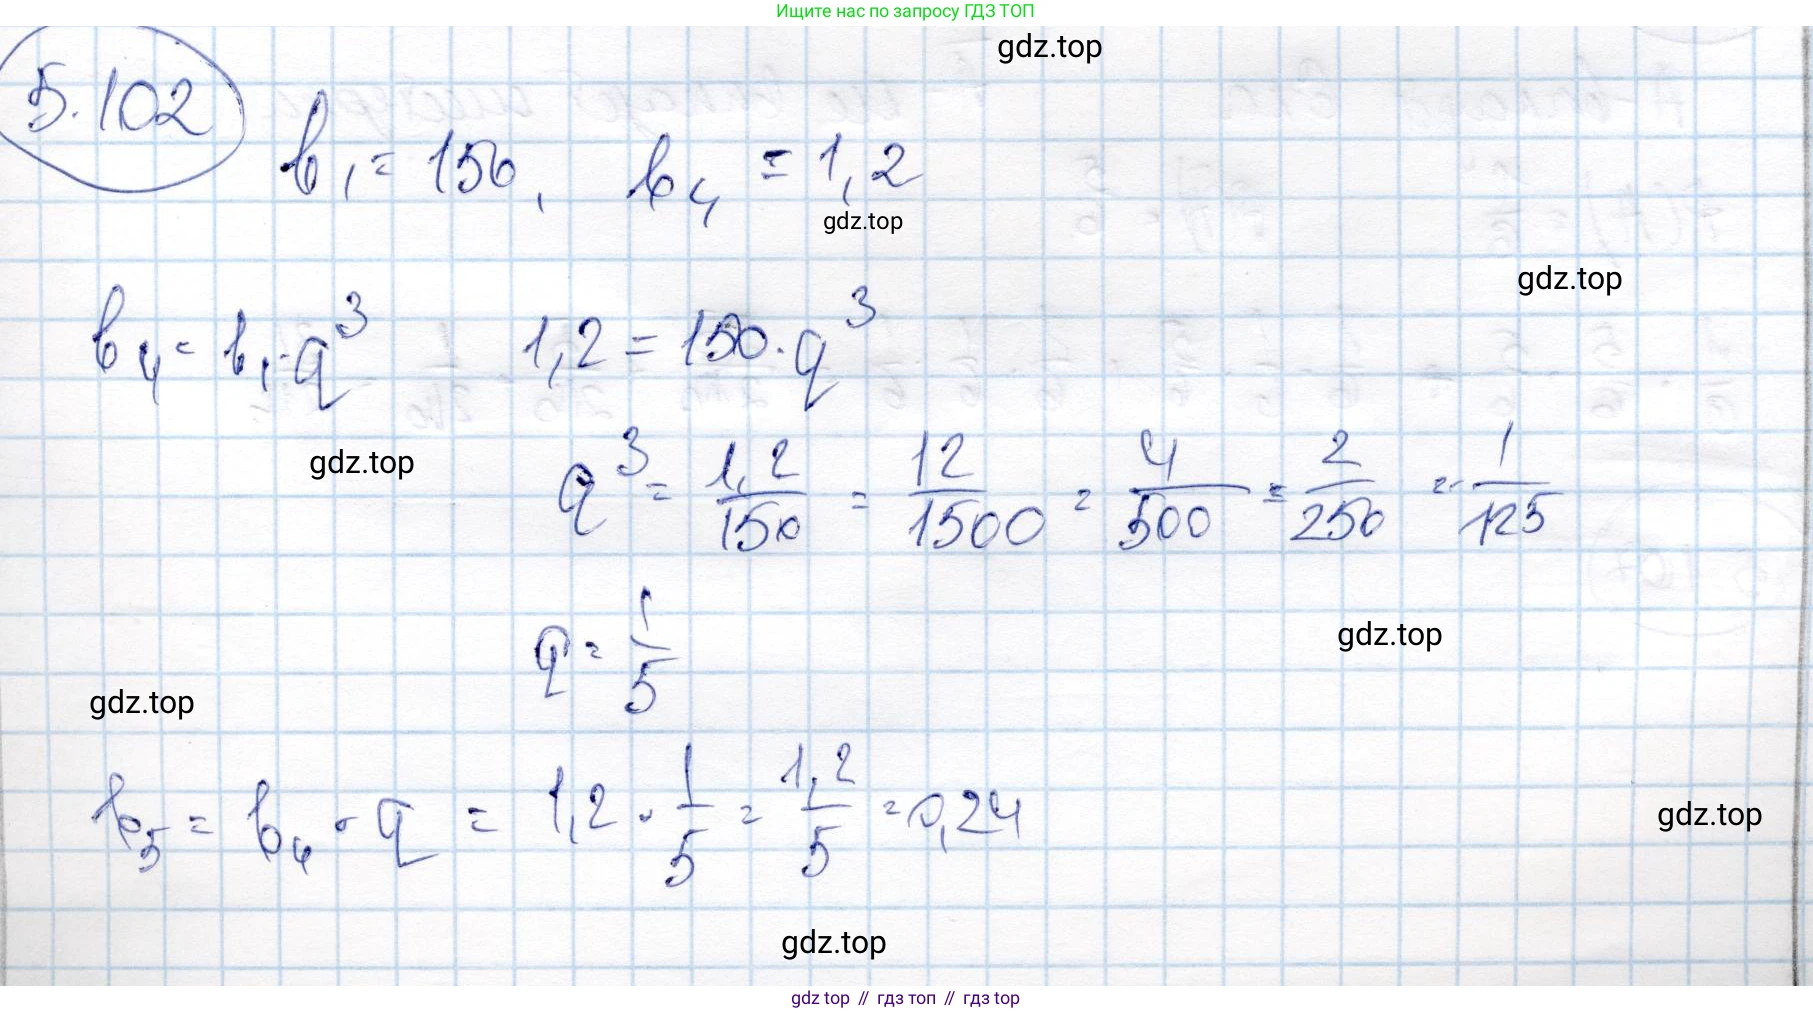 Ищите нас по запросу ГДЗ ТОП
gdz.top
5.102
b₁ = 150, b₄ = 1,2
gdz.top
gdz.top
b₄ = b₁ · q³ 1,2 = 150 · q³
gdz.top
q³ = 1,2/150 = 12/1500 = 4/500 = 2/250 = 1/125
q = 1/5
gdz.top
gdz.top
b₅ = b₄ · q = 1,2 · 1/5 = 1,2/5 = 0,24
gdz.top
gdz.top
gdz top // гдз топ // гдз top